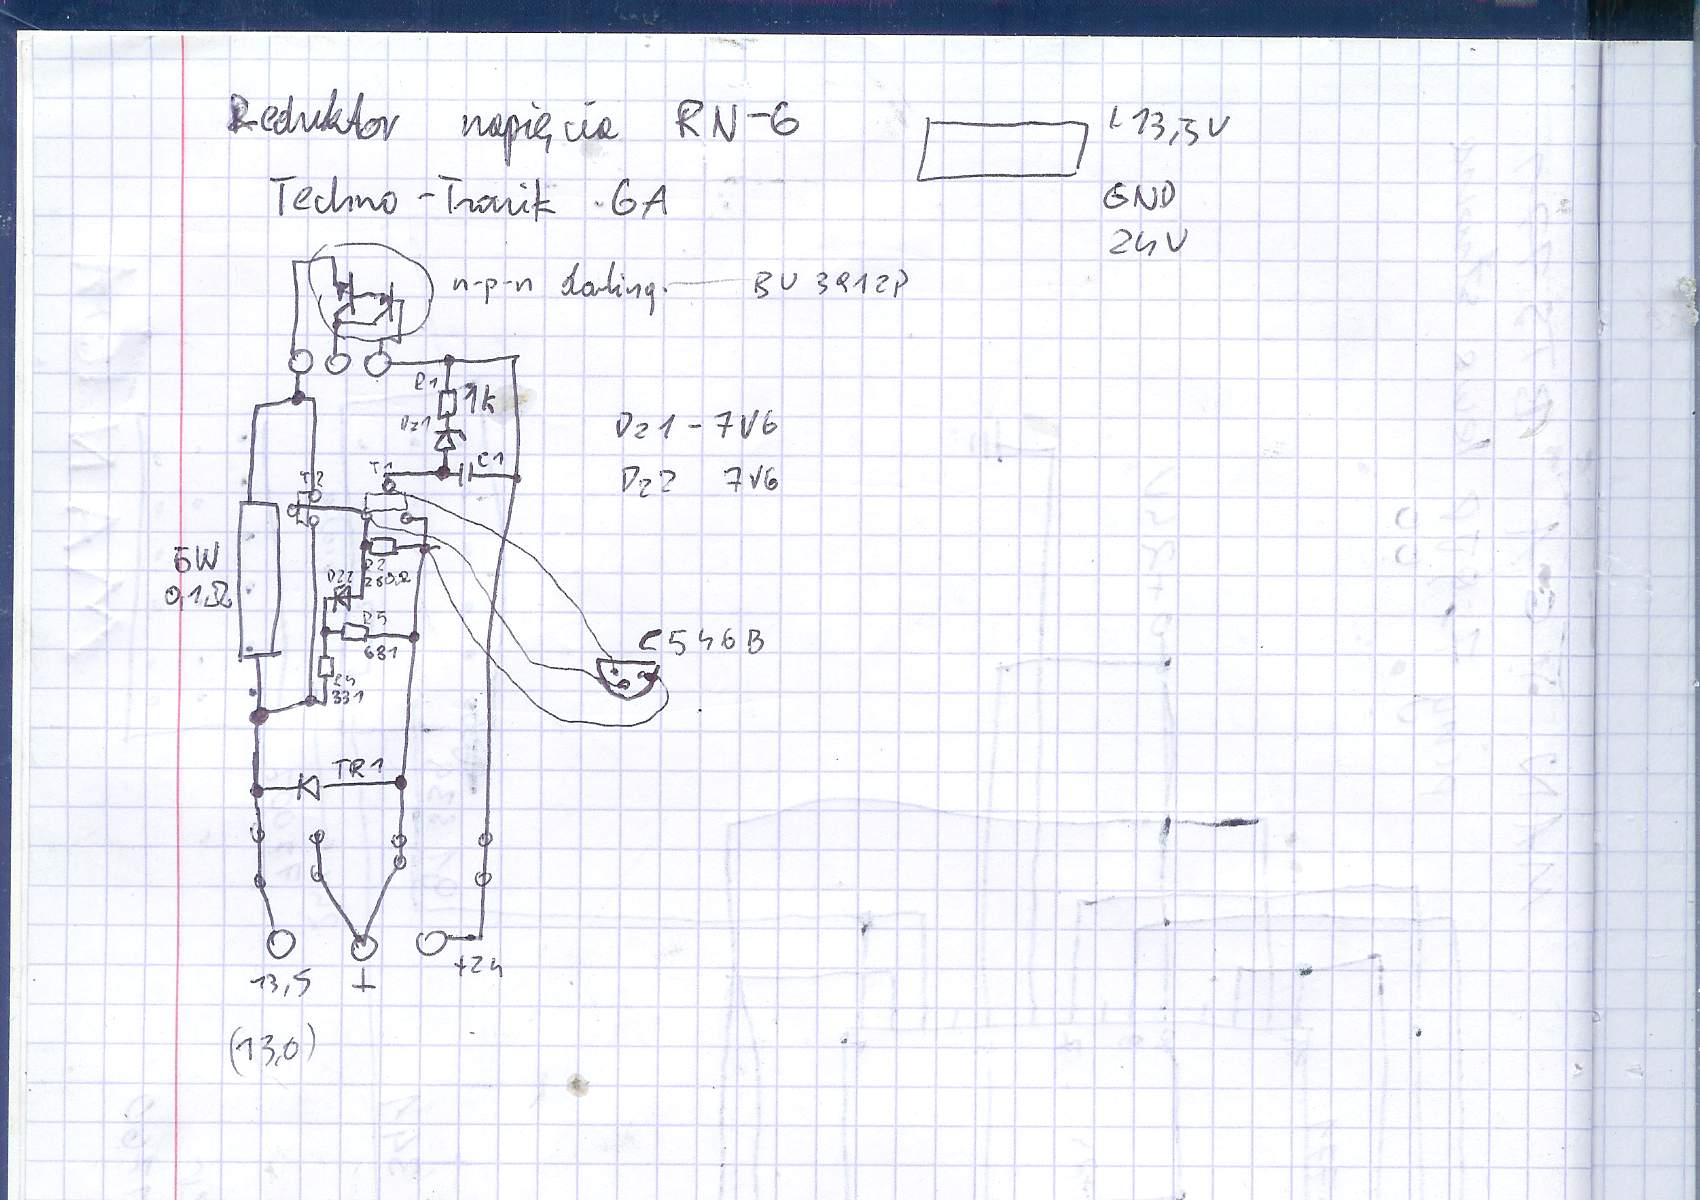 Reduktor napięcia RN-6
Techno-Tronik 6A
13,5V
GND
24V
n-p-n darling. BU 3912P
R1 1k
Dz1
C1
T1
T2
Dz1 - 7V6
Dz2 7V6
5W
0,1Ω
R2
Dz2
R5
681
R4
331
C546B
TR1
13,5
⊥
+24
(13,0)